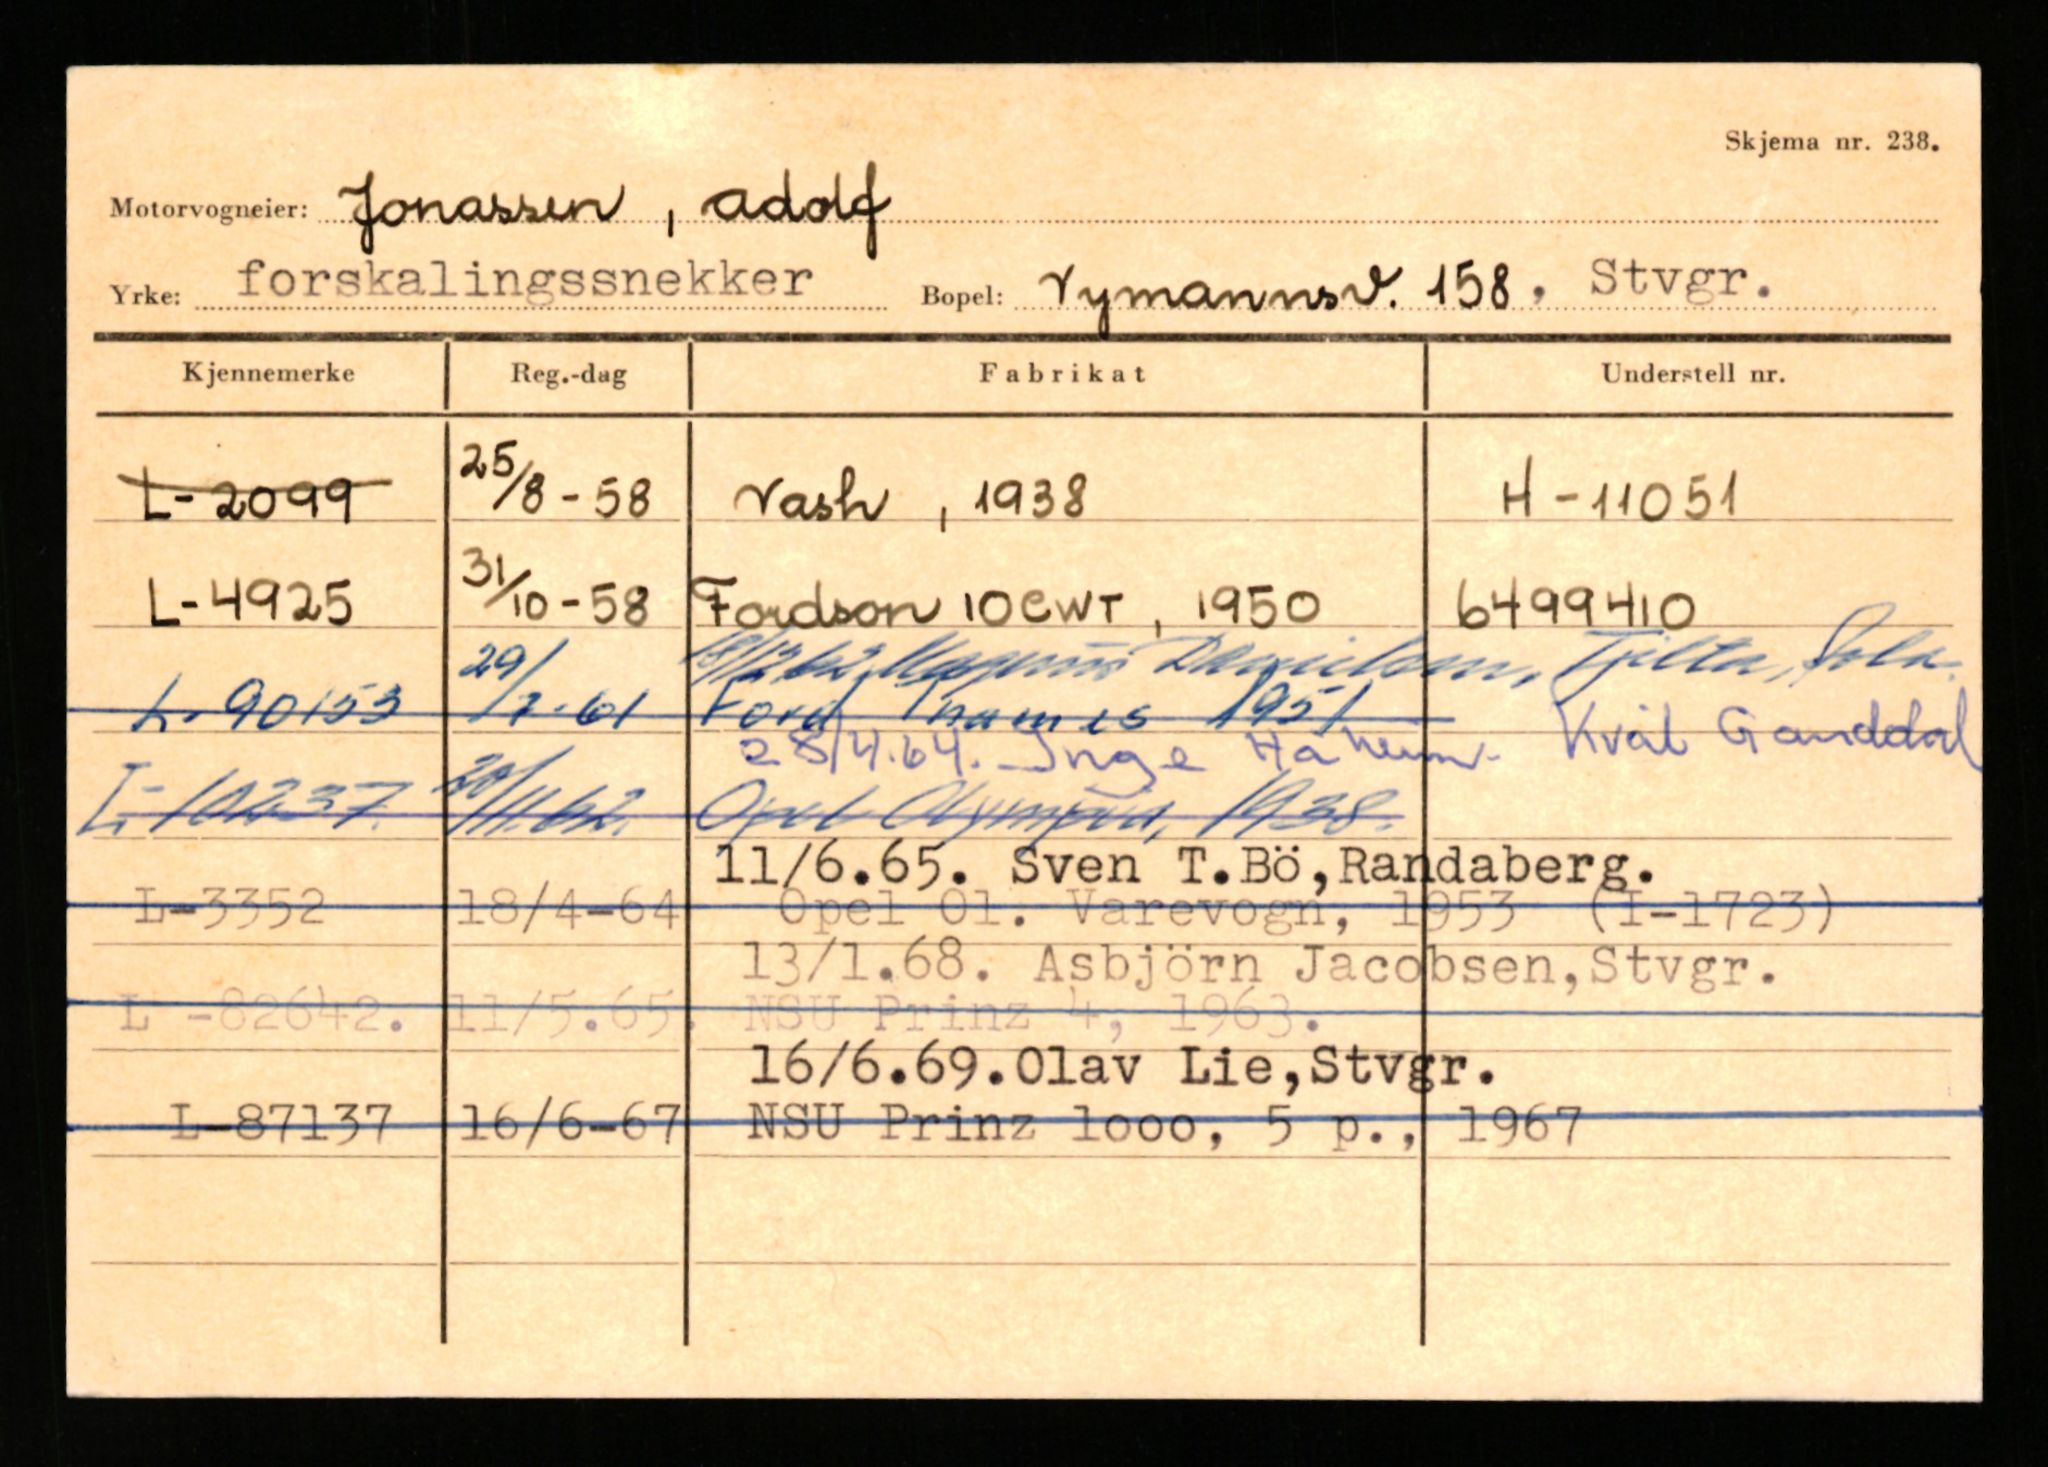 Skjema nr. 238.
Motorvogneier: Jonassen, Adolf
Yrke: forskalingssnekker Bopel: Nymannsv. 158, Stvgr.
Kjennemerke Reg.-dag Fabrikat Understell nr.
L-2099 25/8-58 Nash, 1938 H-11051
L-4925 31/10-58 Fordson 10 CWT, 1950 6499410
18/7 62 Magnus Danielsen, Tjelta, Sola.
L-90153 29/7-61 Ford Thames 1951
28/4.64. Inge Håheim. Kvål Ganddal
L-10237. 20/11.62. Opel Olympia, 1938.
11/6.65. Sven T.Bö,Randaberg.
L-3352 18/4-64 Opel Ol. Varevogn, 1953 (I-1723)
13/1.68. Asbjörn Jacobsen,Stvgr.
L -82642. 11/5.65. NSU Prinz 4, 1963.
16/6.69.Olav Lie,Stvgr.
L-87137 16/6-67 NSU Prinz 1ooo, 5 p., 1967